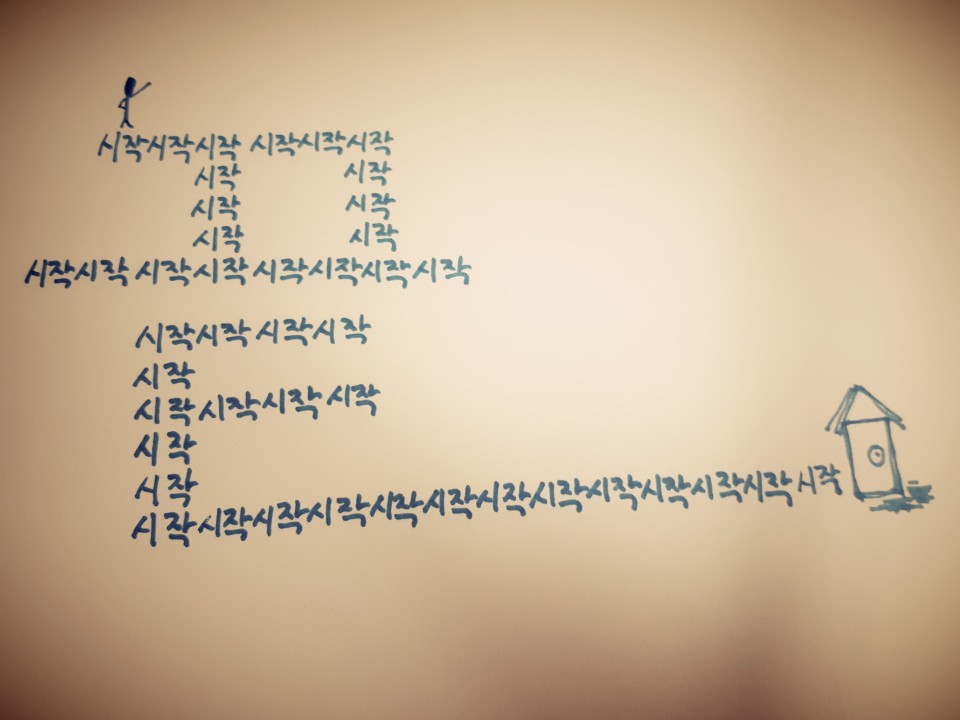 시작시작시작 시작시작시작
시작 시작
시작 시작
시작 시작
시작시작 시작시작 시작시작시작시작
시작시작 시작시작
시작
시작 시작시작 시작
시작
시작
시작시작시작시작시작시작시작시작시작시작시작시작 시작